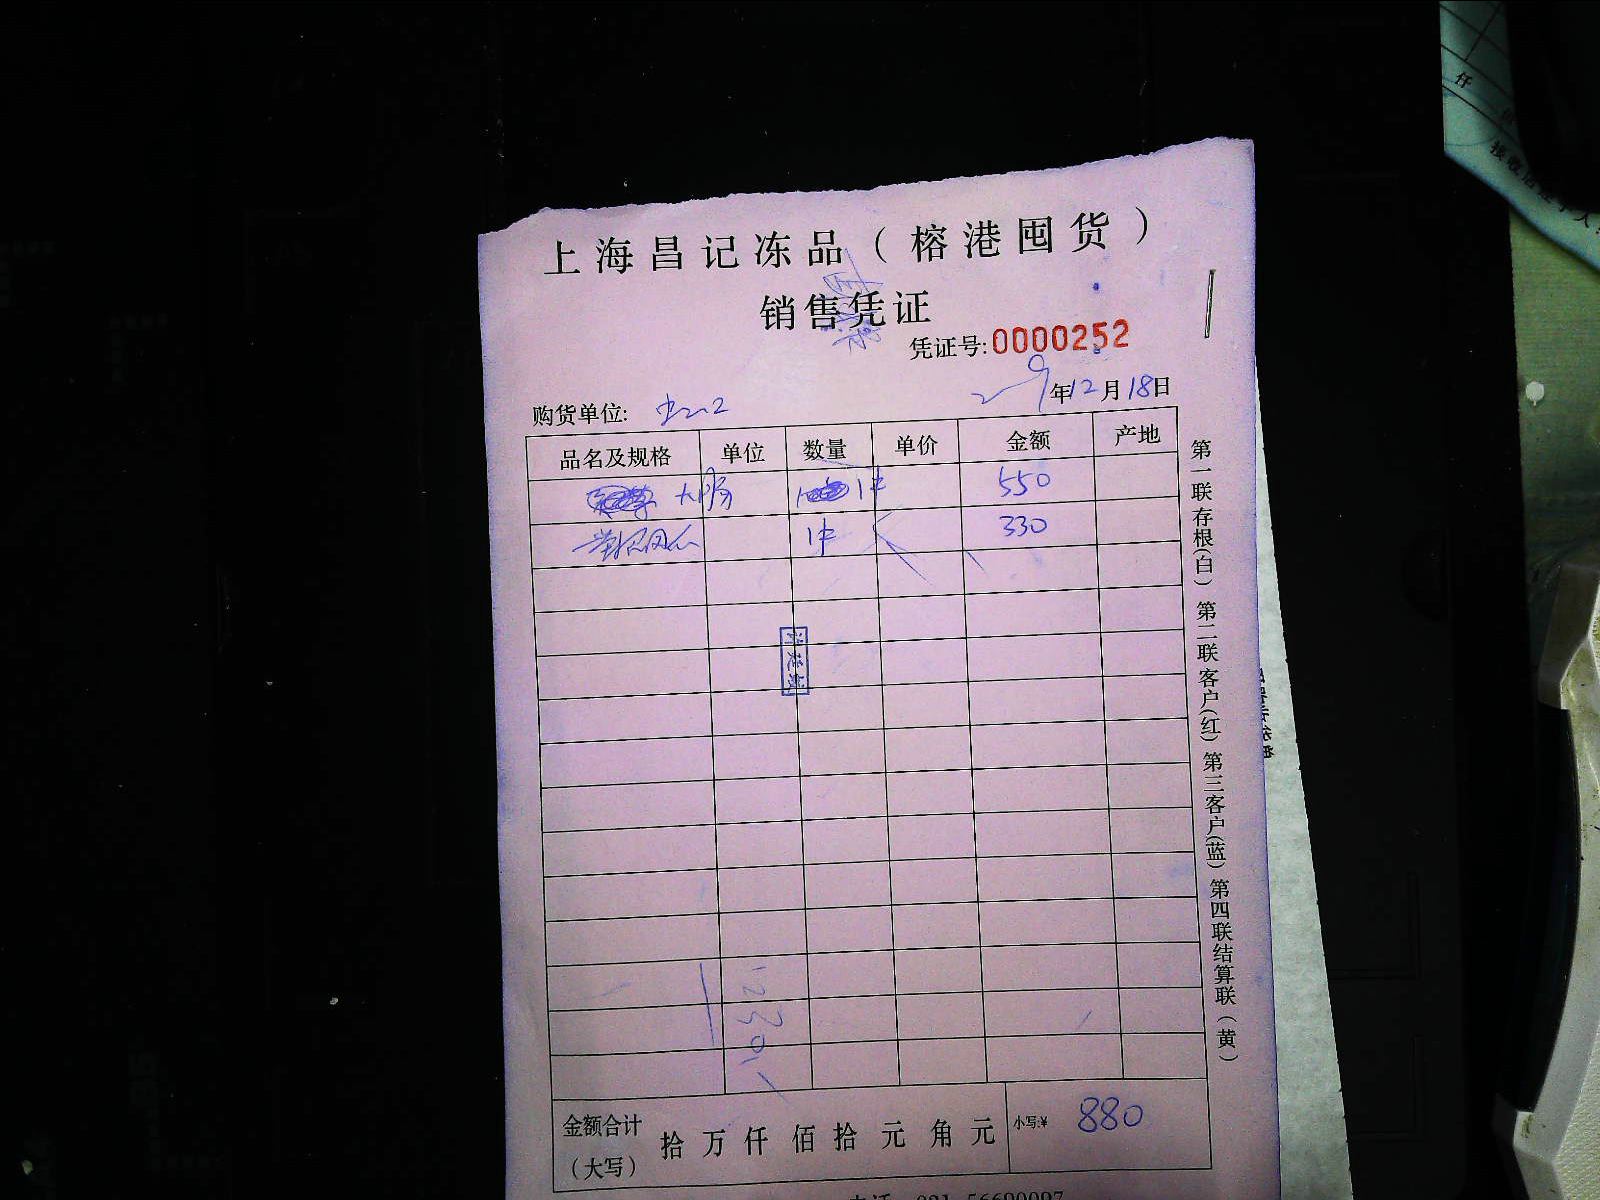 上海昌记冻品（榕港囤货）
销售凭证
凭证号:0000252
年12月18日
购货单位:
品名及规格 单位 数量 单价 金额 产地
大肠 1件 550
1件 330
金额合计（大写） 拾万仟佰拾元角元 小写:¥ 880
第一联存根(白) 第二联客户(红) 第三客户(蓝) 第四联结算联(黄)
仟